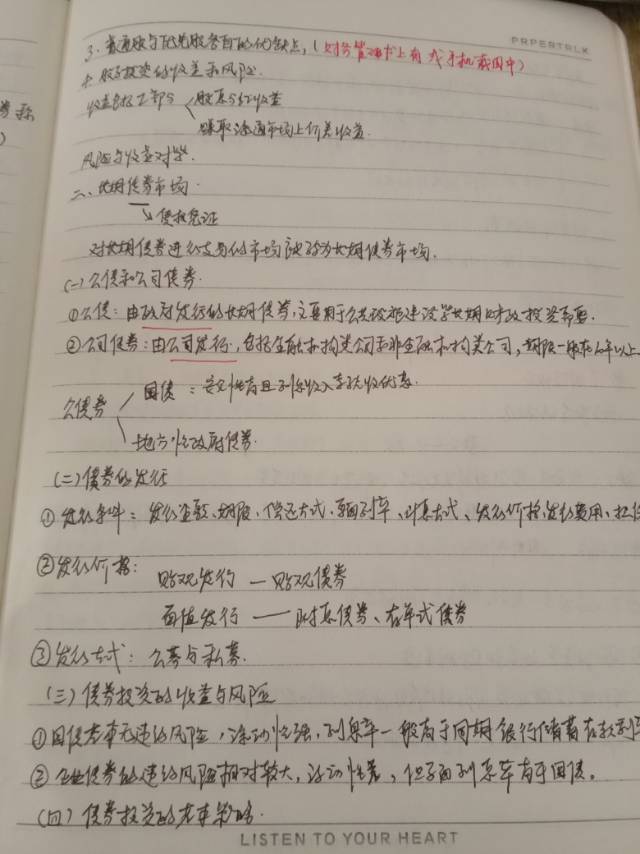 PRPERTALK
3. 普通股与优先股各自的优缺点，（财务管理书上有 或手机截图中）
4. 股子投资的收益和风险.
收益包括二部分 股息分红收益
赚取流通市场上价差收益.
风险与收益对等.
二、长期债券市场.
债权凭证
对长期债券进行交易的市场就称为长期债券市场.
(一) 公债和公司债券.
①公债：由政府发行的长期债券，主要用于公共设施建设等长期财政投资需要.
②公司债券：由公司发行，包括金融机构类公司和非金融机构类公司，期限一般在以上
公债券 国债：安全性高且利息收入享税收优惠.
地方性政府债券.
(二) 债券的发行
①发行条件：发行金额、期限、偿还方式、票面利率、计息方式、发行价格、发行费用、担保
②发行价格：贴现发行 — 贴现债券
面值发行 —— 附息债券、存单式债券
③发行方式：公募与私募.
(三) 债券投资的收益与风险
①国债基本无违约风险，流动性强，利息率一般高于同期银行储蓄存款利率
②企业债券的违约风险相对较大，流动性差，但票面利息率高于国债。
(四) 债券投资的基本策略.
LISTEN TO YOUR HEART